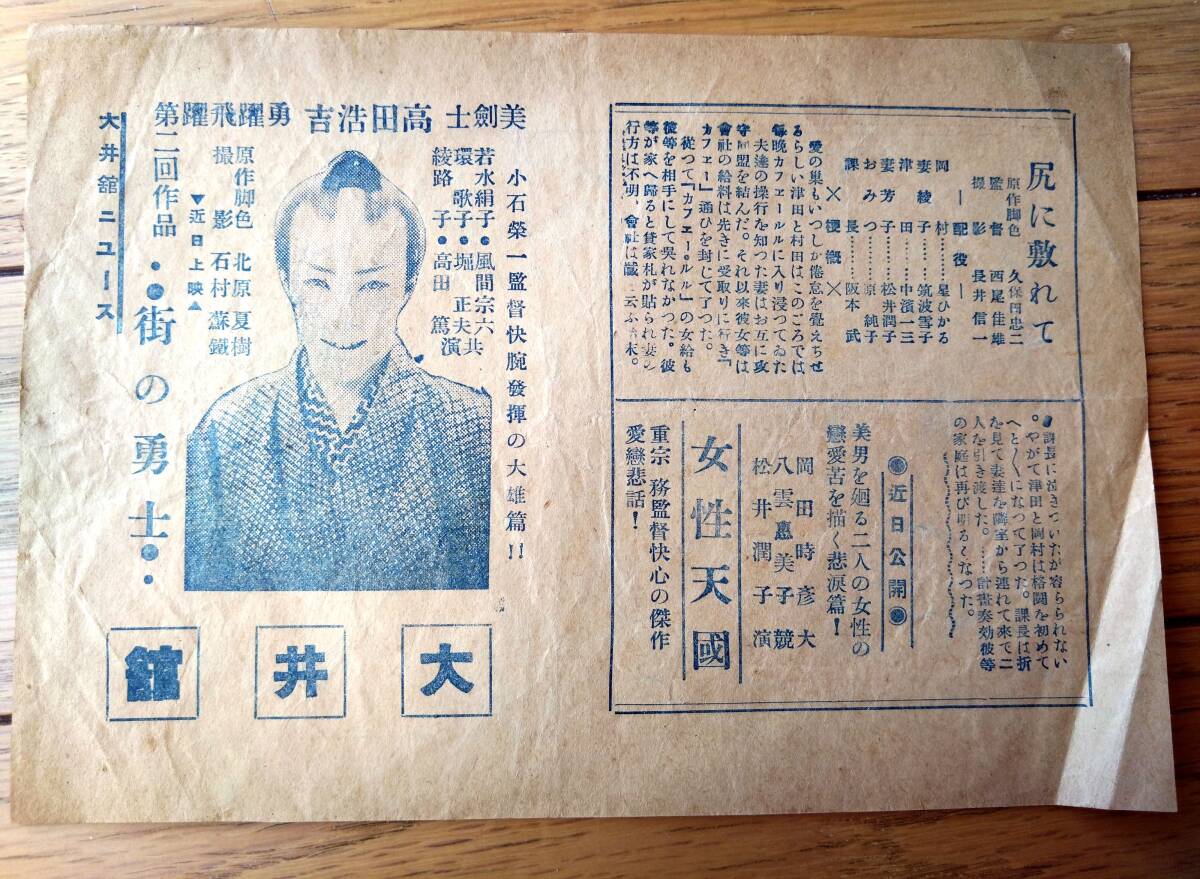 尻に敷れて
原作脚色 久保田忠二
監督 西尾佳雄
撮影 長井信一
―配役―
岡村………星ひかる
妻綾子……筑波雪子
津田……中濱一三
妻芳子……松井潤子
おみつ……原純子
課長………阪本武
×梗概×
愛の巣もいつしか倦怠を覺えちせ
るらしい津田と村田はこのごろでは
毎晩カフヱールルに入り浸つてゐた
夫達の操行を知つた妻はお互に攻
守同盟を結んだ。それ以來彼女等は
會社の給料は先きに受取りに行き「
カフヱー」通ひを封じて了つた。
從つて「カフヱー・ルル」の女給も
彼等を相手にして呉れなかつた。彼
等が家へ歸ると貸家札が貼られ妻の
行方は不明、會社は馘と云ふ始末。
課長に泣きついたが容られられない
。やがて津田と岡村は格鬪を初めて
へと〳〵になつて了つた。課長は折
を見て妻達を隣室から連れて來て二
人を引き渡した。……計畫奏効彼等
の家庭は再び明るくなつた。
●近日公開●
美男を廻る二人の女性の
戀愛苦を描く悲涙篇!
岡田時彦大
八雲惠美子競
松井潤子演
女性天國
重宗務監督快心の傑作
愛戀悲話!
小石榮一監督快腕發揮の大雄篇!!
美劍士高田浩吉勇躍飛躍
若水絹子・風間宗六共
環歌子・堀正夫
綾路子・高田篤演
原作脚色 北原夏樹
撮影 石村蘇鐵
▼近日上映▲
第二回作品
・●街の勇士●・
大井舘ニユース
大井舘